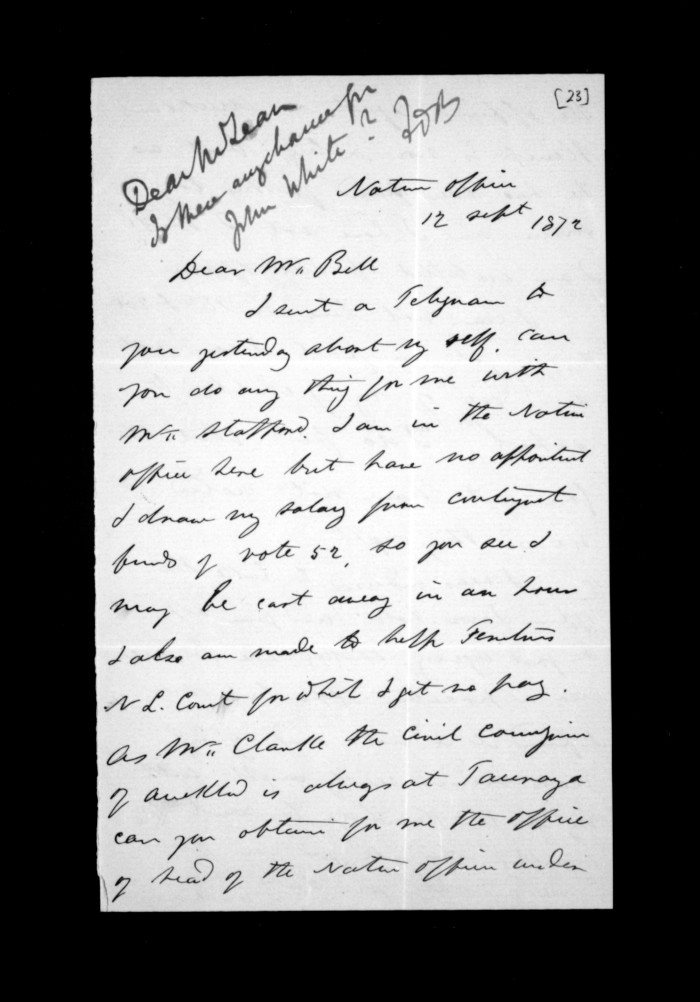 [23]
Dear McLean
Is there any chance for
John White? FDB
Native Office
12 Sept 1872
Dear Mr Bell
I sent a Telegram to
you yesterday about my self. can
you do any thing for me with
Mr Stafford. I am in the Native
office here but have no appointment
I draw my salary from contingent
funds of vote 52, so you see I
may be cast away in an hour
I also am made to help Fenton's
N L. Court for which I get no pay.
As Mr Clarke the Civil Commissioner
of Auckld is always at Tauranga
can you obtain for me the office
of head of the Native Office under